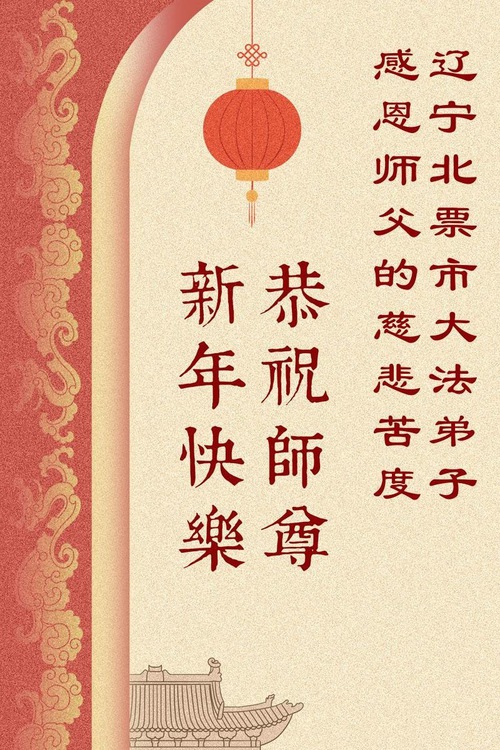 辽宁北票市大法弟子
感恩师父的慈悲苦度
恭祝師尊
新年快樂